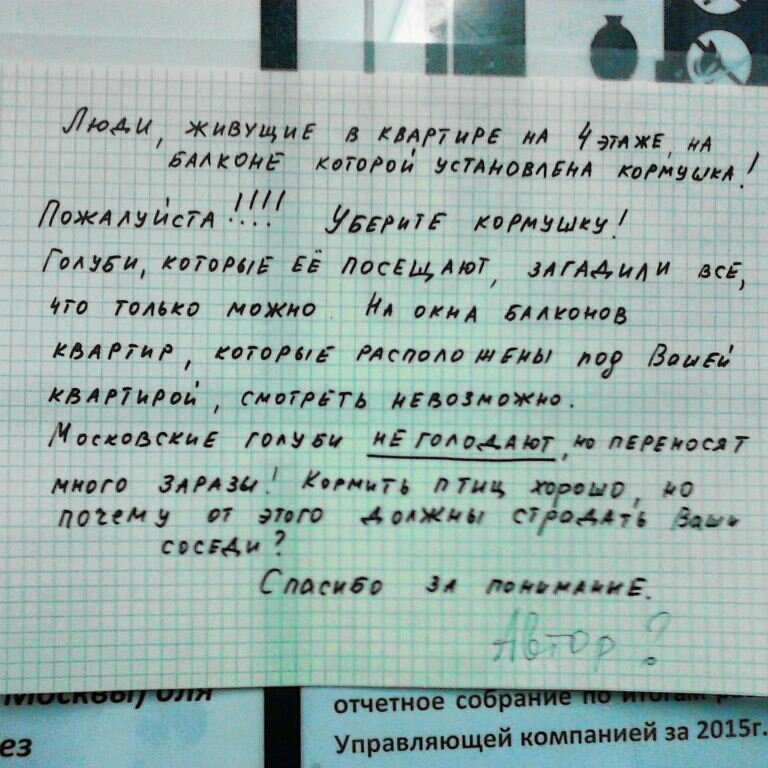 Люди, живущие в квартире на 4 этаже, на
балконе которой установлена кормушка!
Пожалуйста!!!! Уберите кормушку!
Голуби, которые её посещают, загадили всё,
что только можно. На окна балконов
квартир, которые расположены под Вашей
квартирой, смотреть невозможно.
Московские голуби не голодают, но переносят
много заразы! Кормить птиц хорошо, но
почему от этого должны страдать Ваши
соседи?
Спасибо за понимание.
Автор?
Москвы) для
отчетное собрание по итогам
ез
Управляющей компанией за 2015г.